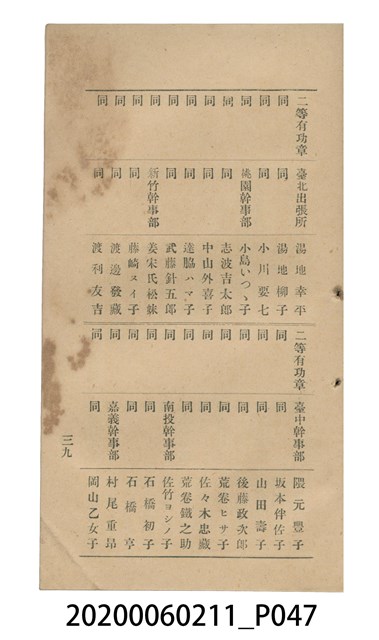 二等有功章 臺北出張所 湯地幸平
同 同 湯地柳子
同 同 小川要七
同 桃園幹事部 小島いつゝ子
同 同 志波吉太郎
同 同 中山外喜子
同 同 達脇ハマ子
同 同 武藤針五郎
同 新竹幹事部 姜宋氏松妹
同 同 藤崎ヌイ子
同 同 渡邊發藏
同 同 渡利友吉
二等有功章 臺中幹事部 隈元豐子
同 同 坂本伴佐子
同 同 山田壽子
同 同 後藤政次郎
同 同 荒卷ヒサ子
同 同 佐々木忠藏
同 同 荒卷鐵之助
同 南投幹事部 佐竹ヨシノ子
同 同 石橋初子
同 同 石橋亨
同 嘉義幹事部 村尾重昂
同 同 岡山乙女子
三九
20200060211_P047